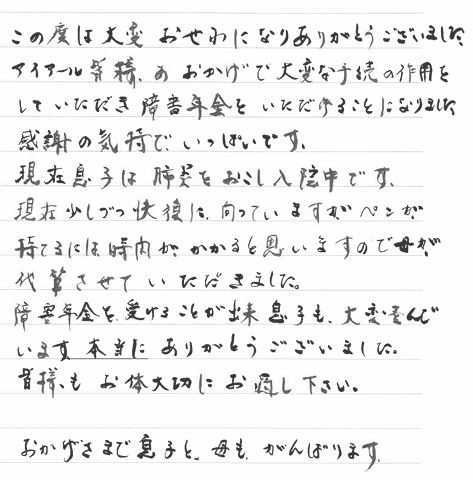 この度は大変おせわになりありがとうございました
アイアール皆様のおかげで大変な手続の作用を
していただき障害年金をいただけることになりました
感謝の気持でいっぱいです。
現在息子は肺炎をおこし入院中です。
現在少しづつ快復に向っていますがペンが
持てるには時間がかかると思いますので母が、
代筆させていただきました。
障害年金を受けることが出来息子も、大変喜んで
います。本当にありがとうございました。
皆様もお体大切にお過し下さい。
おかげさまで息子と、母も、がんばります。